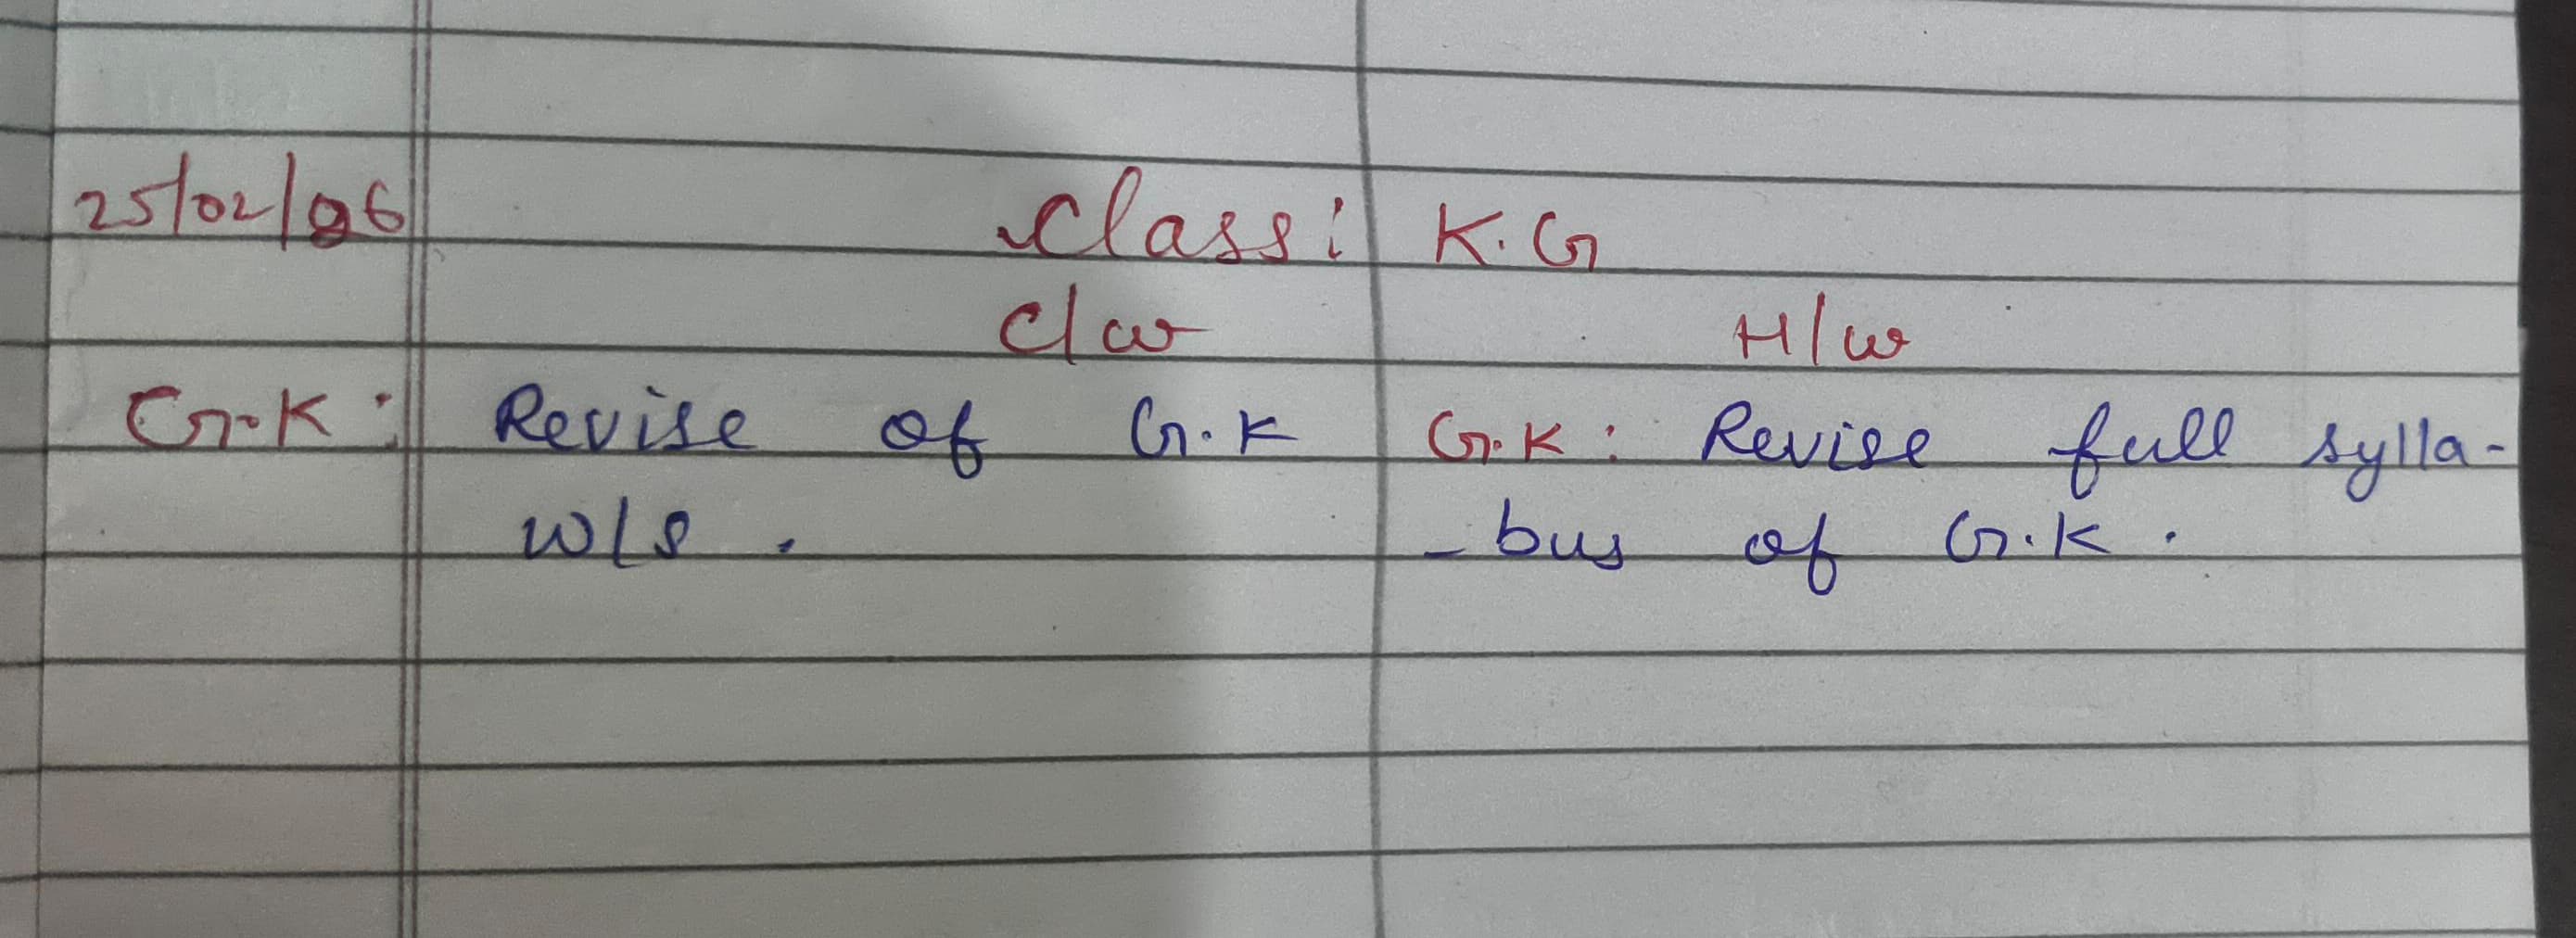 25/02/26 Class: K.G
C/w H/w
G.K: Revise of G.K G.K: Revise full sylla-
W/S. -bus of G.K.